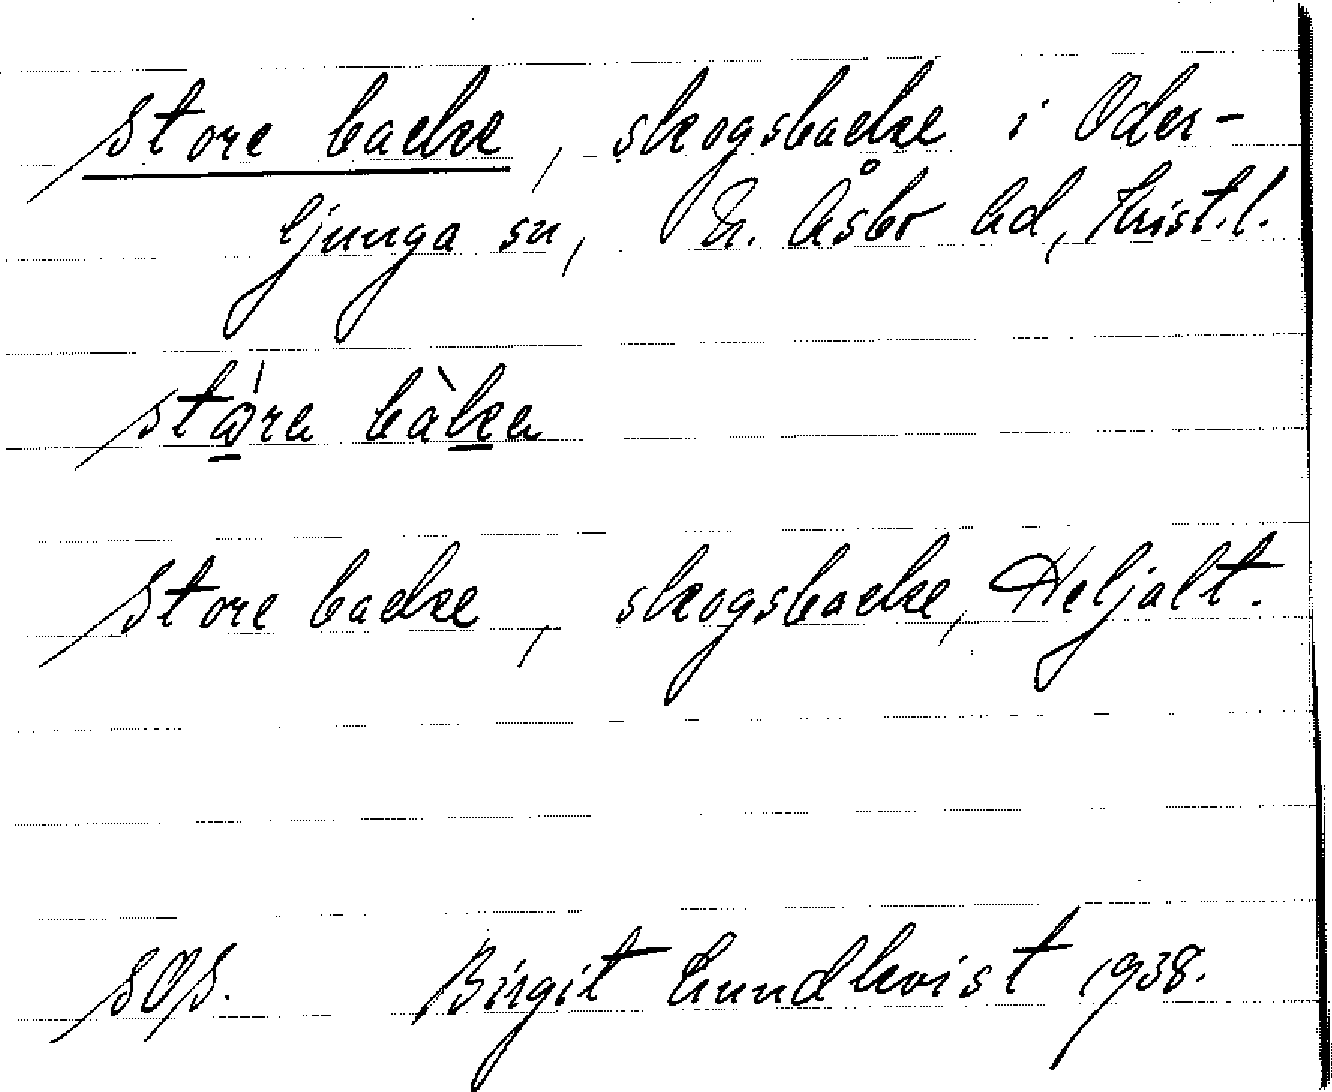 Store backe, skogsbacke i Oder-
ljunga sn, N. Åsbo hd, Krist. l.
backe
Store backe, skogsbacke, Heljalt.
SOS. Birgit Lundkvist 1938.